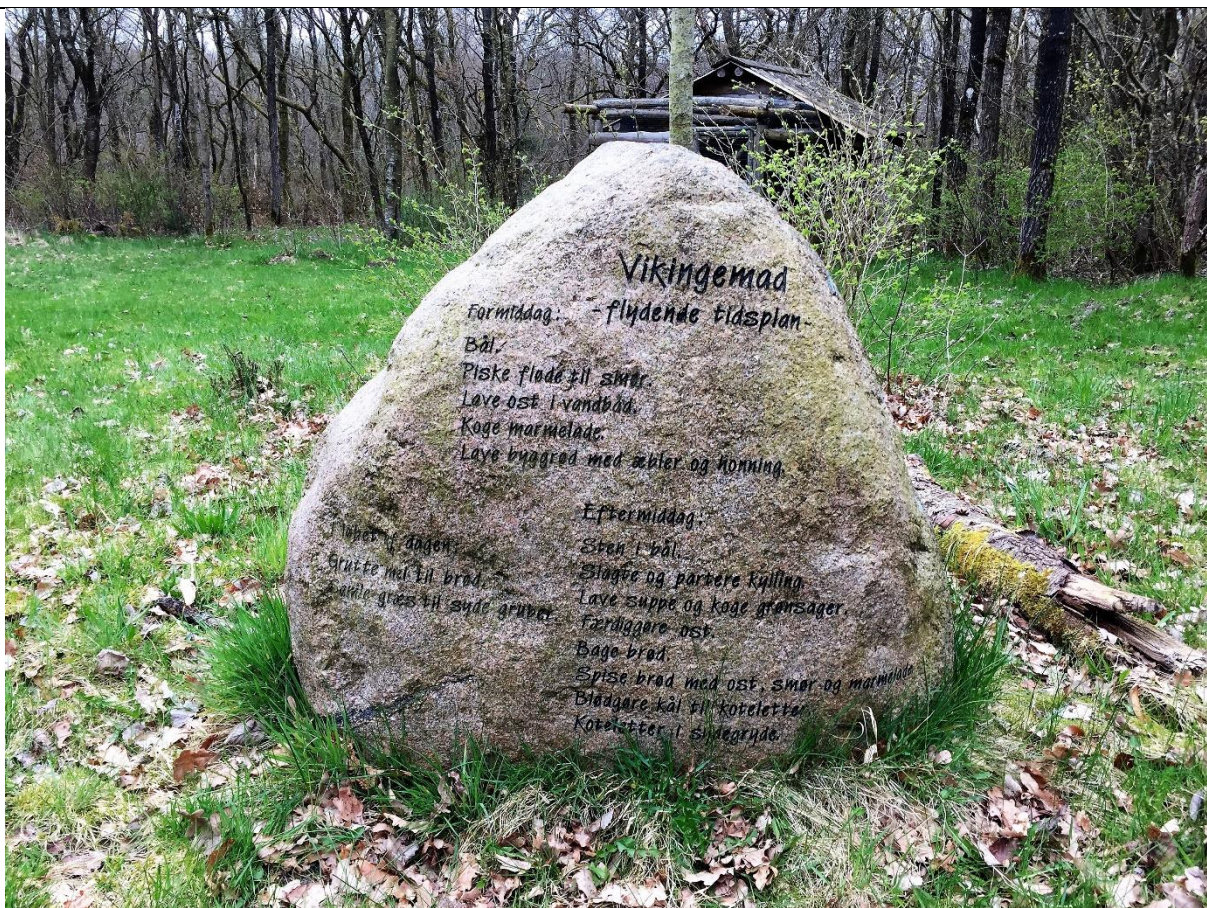 Vikingemad
- flydende tidsplan -
Formiddag:
Bål.
Piske fløde til smør.
Lave ost i vandbad.
Koge marmelade.
Lave byggrød med æbler og honning.
I løbet af dagen:
Grutte mel til brød.
Samle græs til syde gruber.
Eftermiddag:
Sten i bål.
Slagte og partere kylling.
Lave suppe og koge grønsager.
Færdiggøre ost.
Bage brød.
Spise brød med ost, smør og marmelade
Blødgøre kål til koteletter
Koteletter i sydegryde.